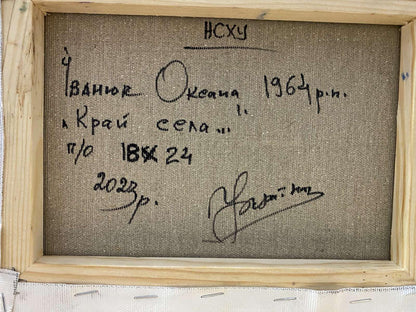 НСХУ
Іванюк Оксана 1964 р.н.
„Край села..."
п/о 18х 24
2023 р.